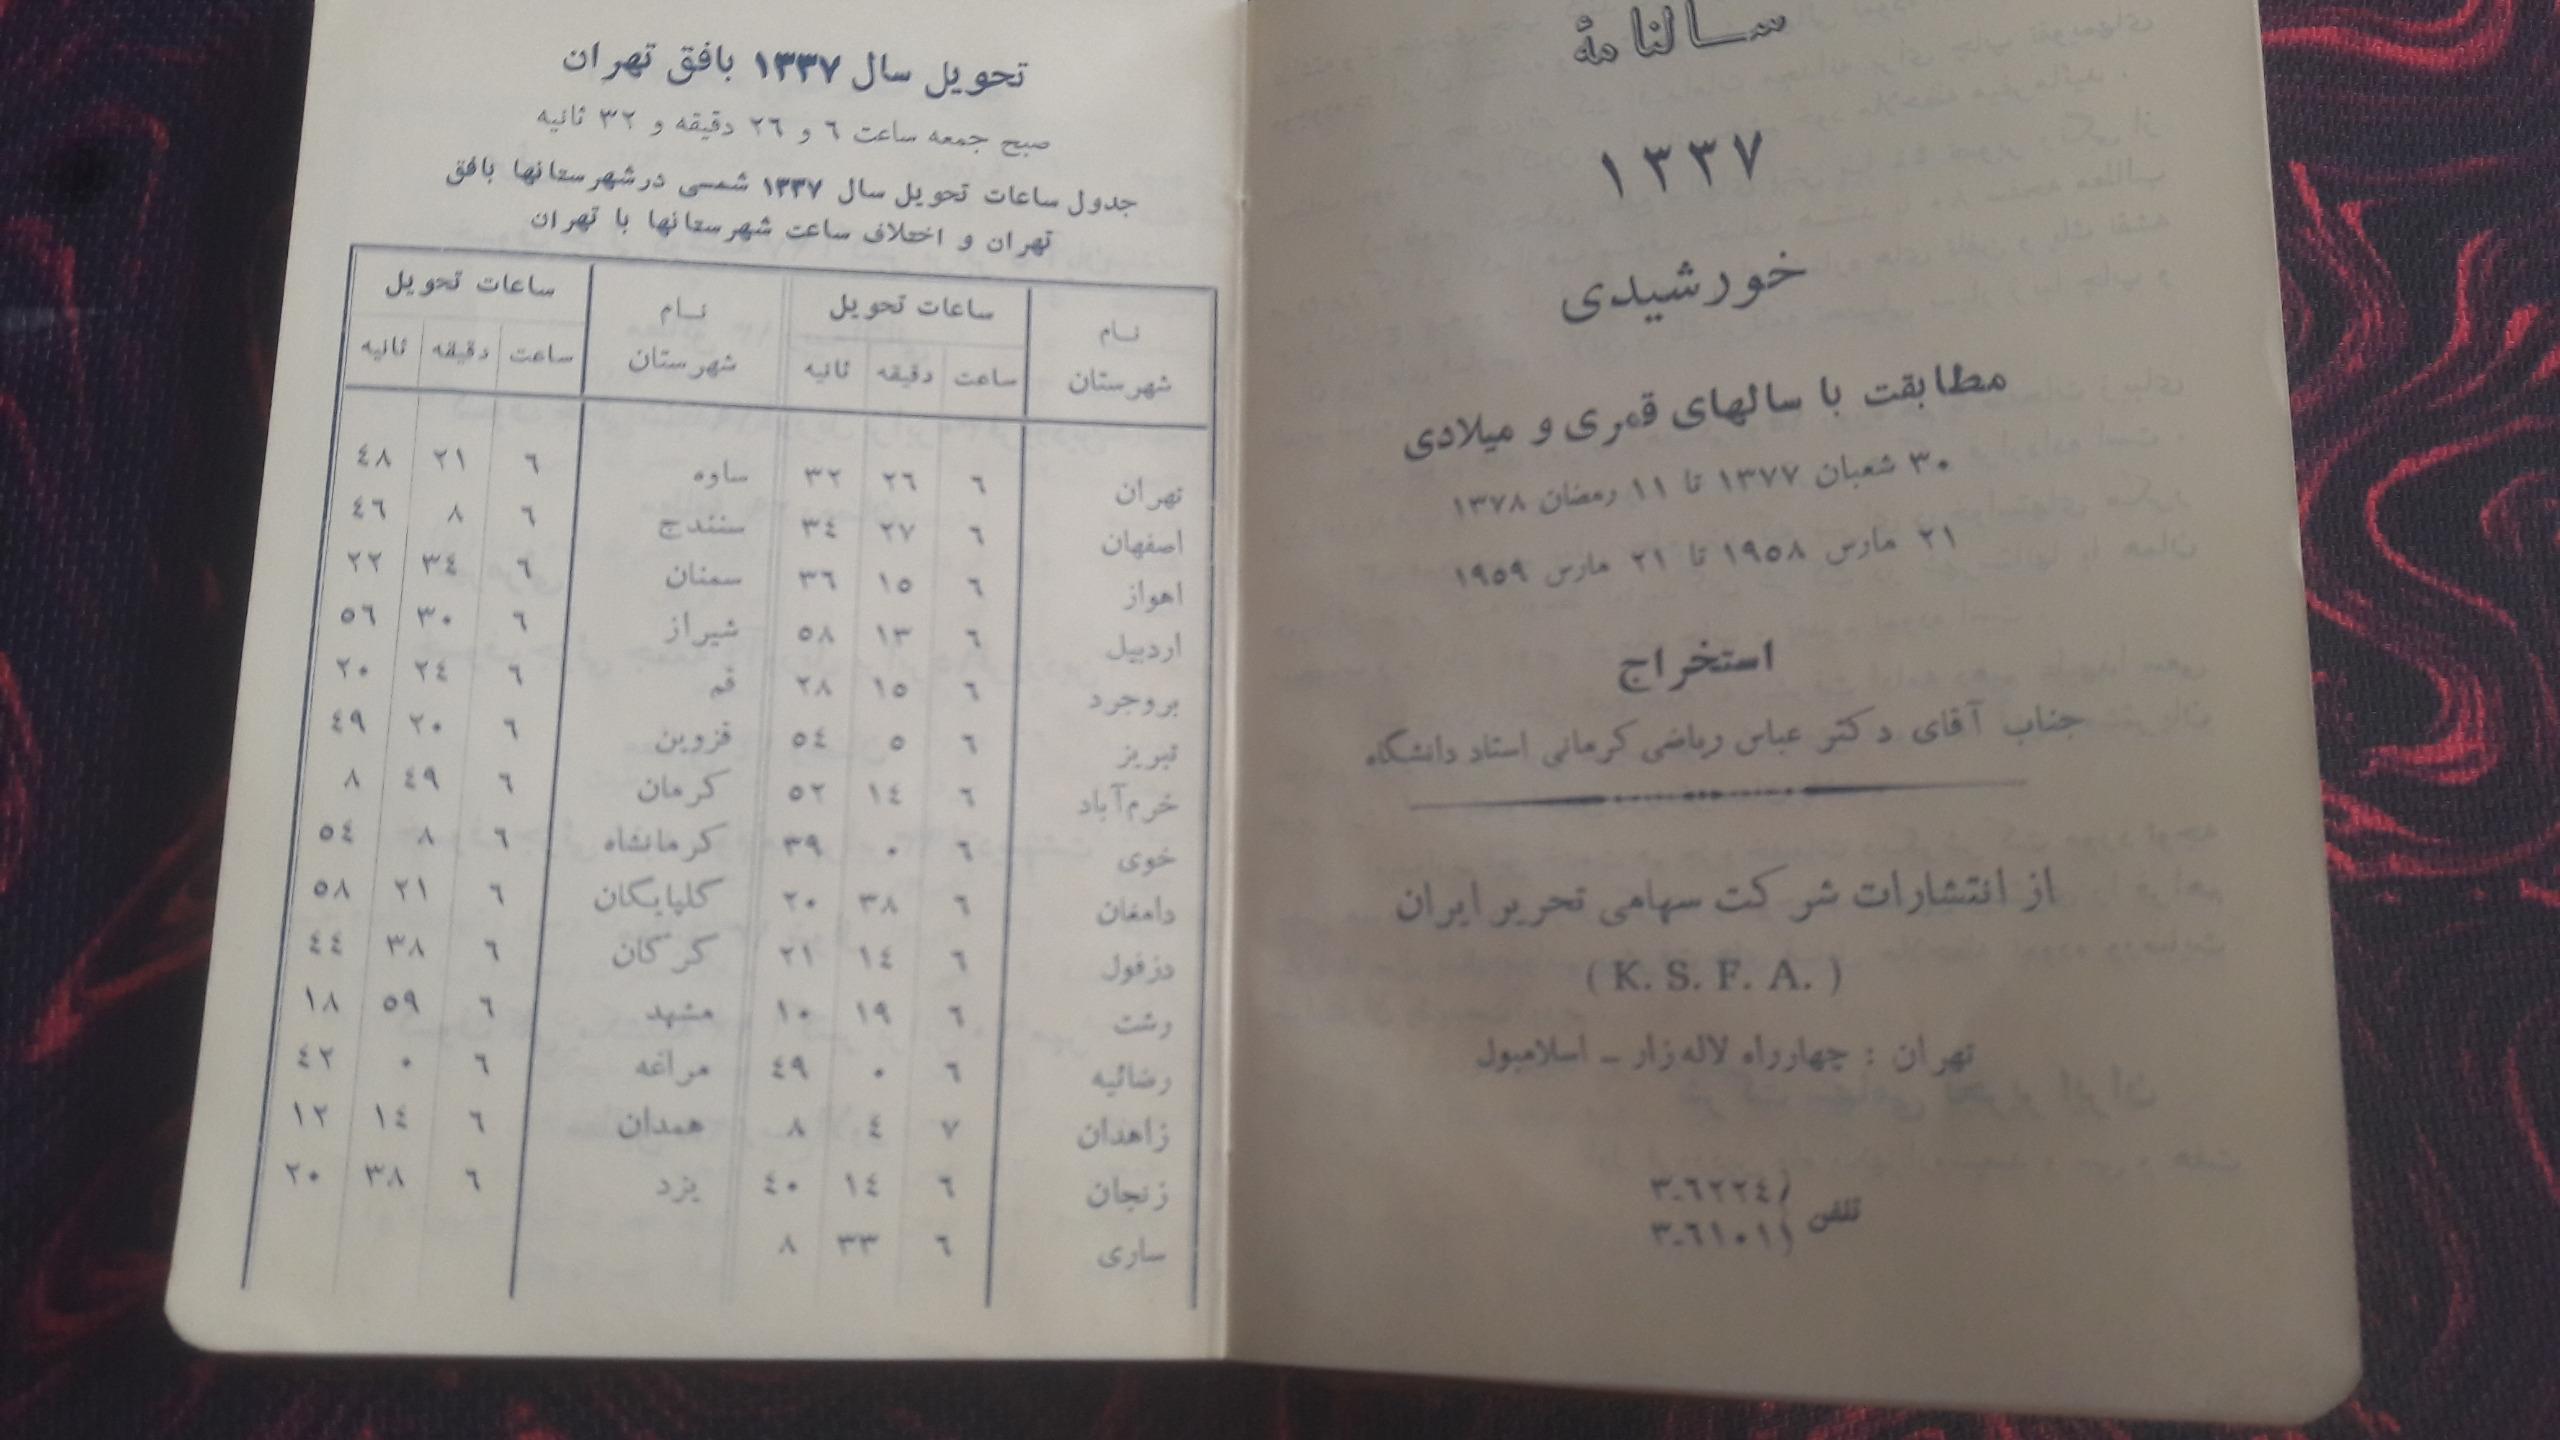 سالنامهٔ
۱۳۳۷
خورشیدی
مطابقت با سالهای قمری و میلادی
۳۰ شعبان ۱۳۷۷ تا ۱۱ رمضان ۱۳۷۸
۲۱ مارس ۱۹۵۸ تا ۲۱ مارس ۱۹۵۹
استخراج
جناب آقای دکتر عباس ریاضی کرمانی استاد دانشگاه
از انتشارات شرکت سهامی تحریر ایران
( K. S. F. A. )
تهران : چهارراه لاله‌زار ـ اسلامبول
تلفن
۳ـ٦۲۲٤
۳ـ٦۱۰۱
تحویل سال ۱۳۳۷ بافق تهران
صبح جمعه ساعت ٦ و ۲٦ دقیقه و ۳۲ ثانیه
جدول ساعات تحویل سال ۱۳۳۷ شمسی درشهرستانها بافق
تهران و اختلاف ساعت شهرستانها با تهران
نام شهرستان ساعات تحویل نام شهرستان ساعات تحویل
ساعت دقیقه ثانیه ساعت دقیقه ثانیه
تهران ٦ ۲٦ ۳۲ ساوه ٦ ۲۱ ٤۸
اصفهان ٦ ۲۷ ۳٤ سنندج ٦ ۸ ٤٦
اهواز ٦ ۱۵ ۳٦ سمنان ٦ ۳٤ ۲۲
اردبیل ٦ ۱۳ ۵۸ شیراز ٦ ۳۰ ۵٦
بروجرد ٦ ۱۵ ۲۸ قم ٦ ۲٤ ۲۰
تبریز ٦ ۵ ۵٤ قزوین ٦ ۲۰ ٤۹
خرم‌آباد ٦ ۱٤ ۵۲ کرمان ٦ ٤۹ ۸
خوی ٦ ۰ ۳۹ کرمانشاه ٦ ۸ ۵٤
دامغان ٦ ۳۸ ۲۰ گلپایگان ٦ ۲۱ ۵۸
دزفول ٦ ۱٤ ۲۱ گرگان ٦ ۳۸ ٤٤
رشت ٦ ۱۹ ۱۰ مشهد ٦ ۵۹ ۱۸
رضائیه ٦ ۰ ٤۹ مراغه ٦ ۰ ٤۲
زاهدان ۷ ٤ ۸ همدان ٦ ۱٤ ۱۲
زنجان ٦ ۱٤ ٤۰ یزد ٦ ۳۸ ۲۰
ساری ٦ ۳۳ ۸